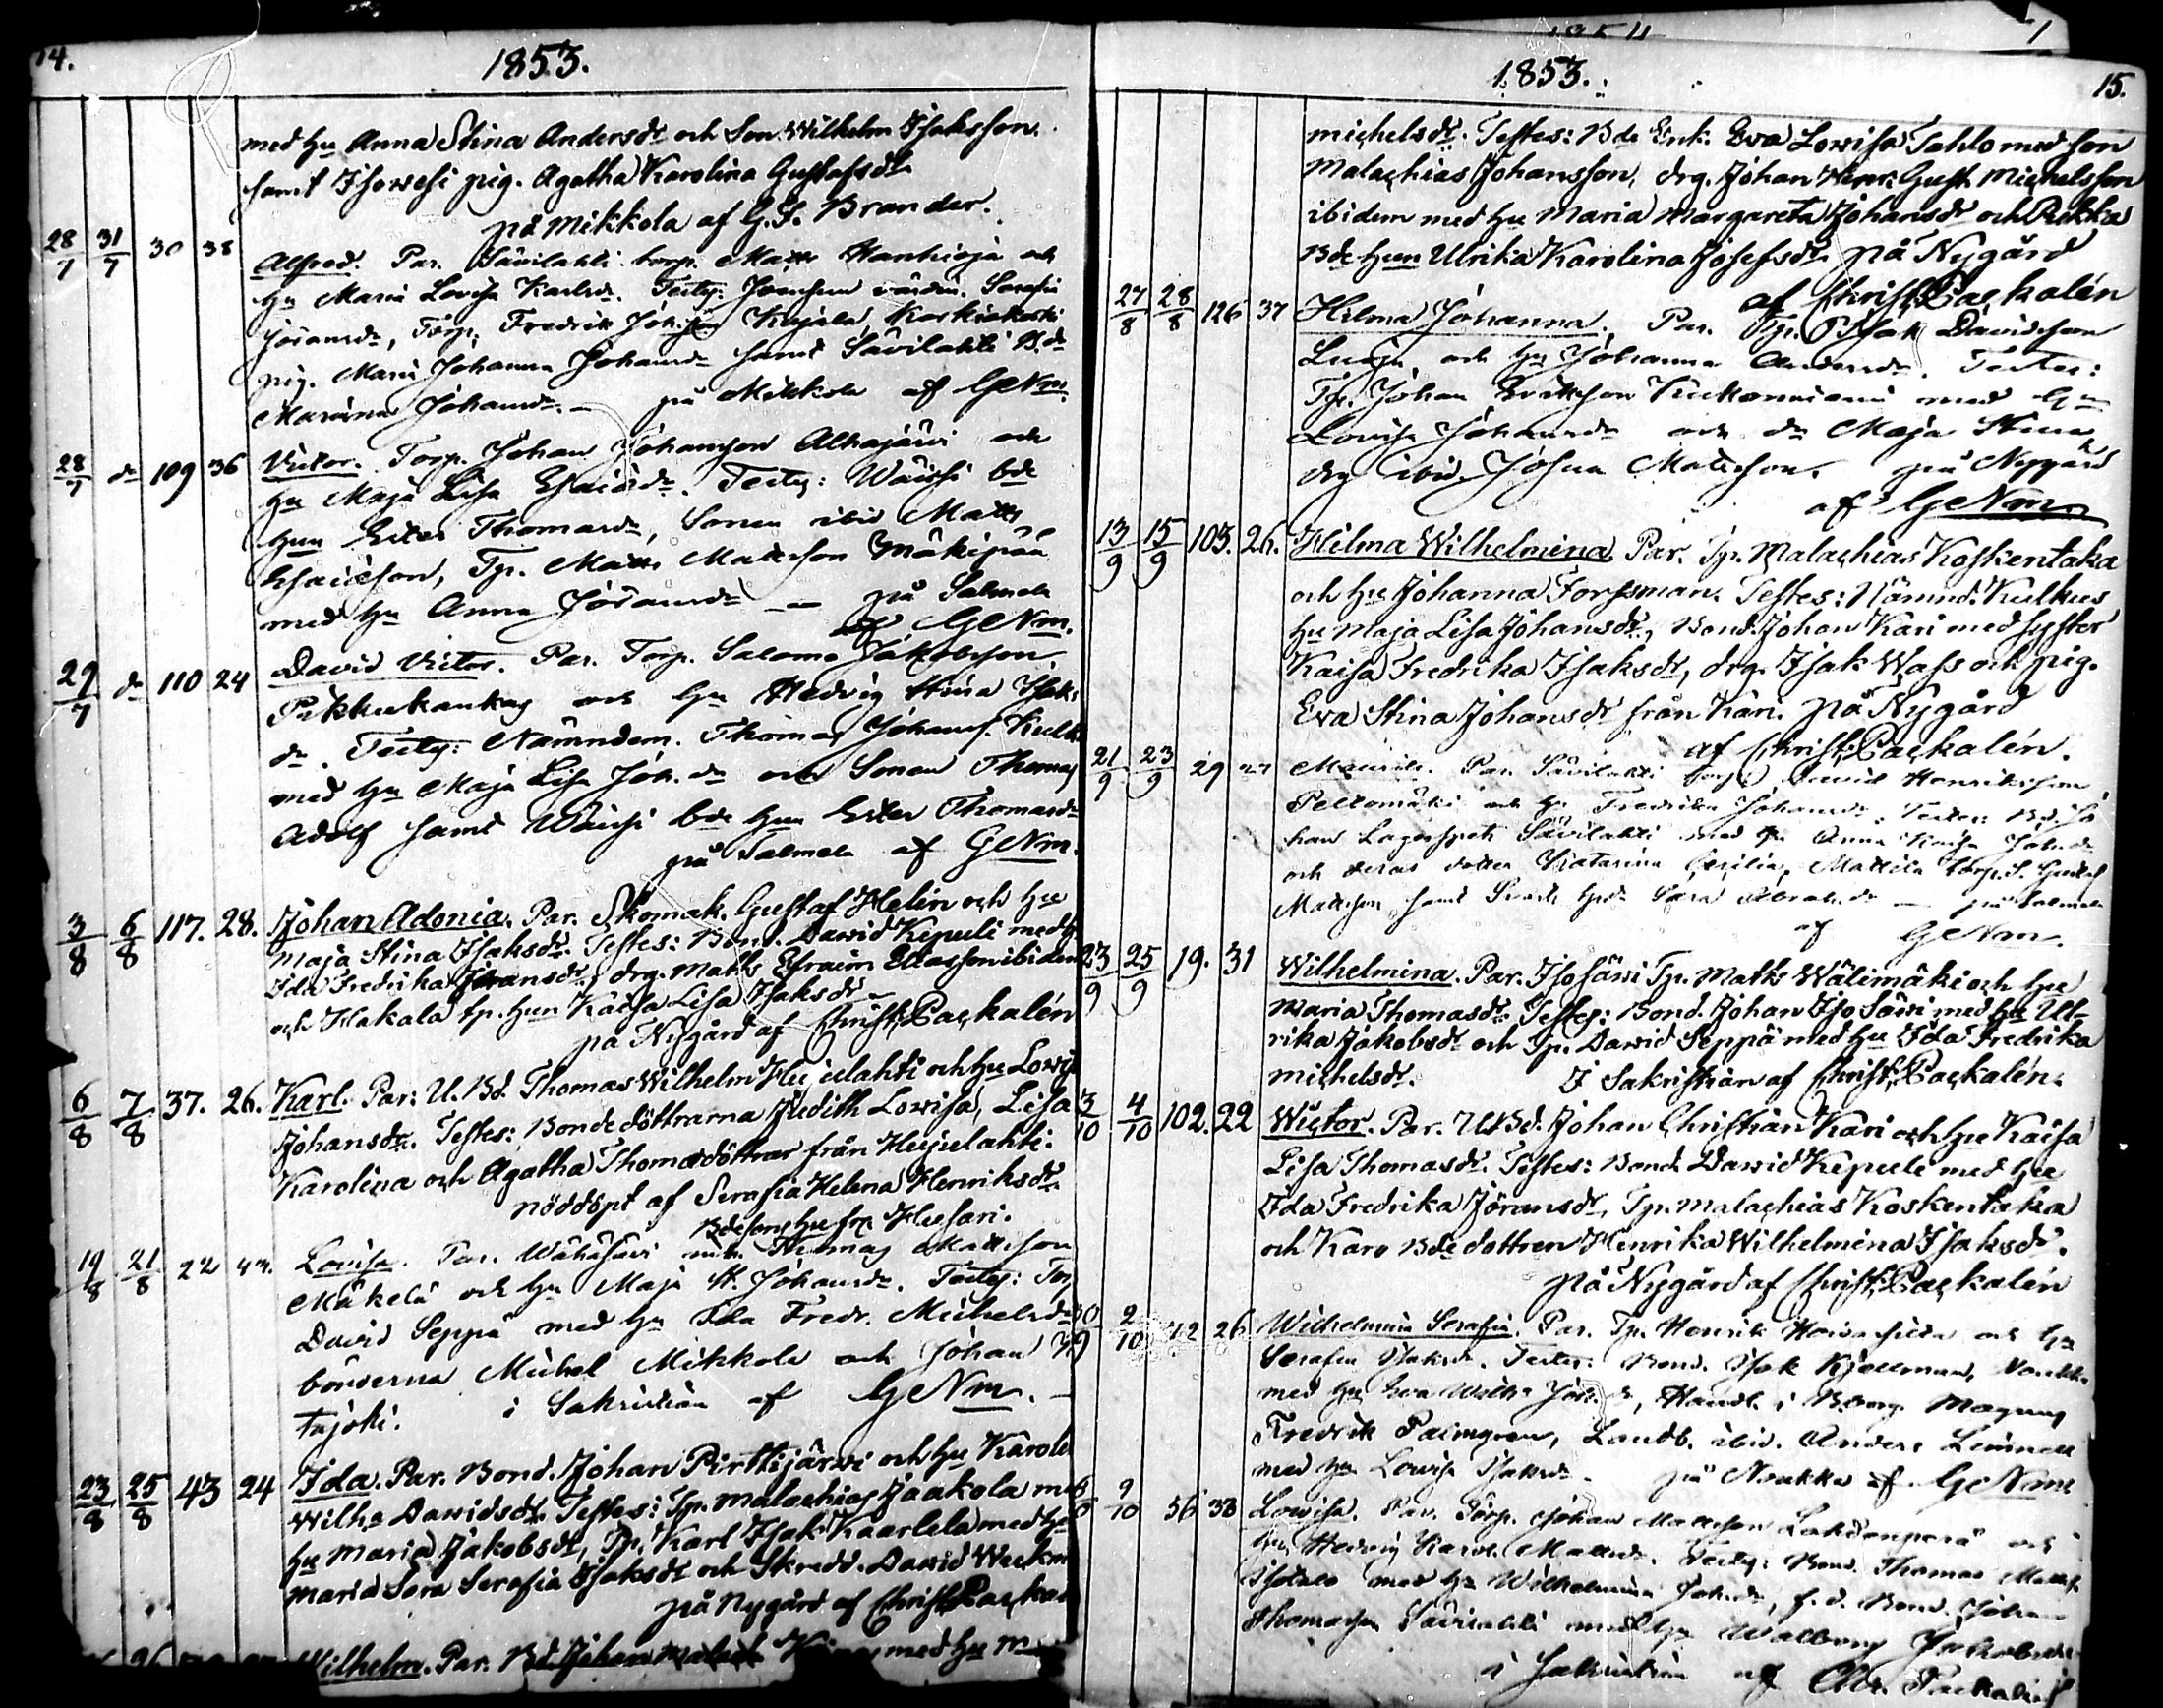 14.
1853.
med hu Anna Stina Andersdr och Son Wilhelm Isaksson
samt Isowesi pig. Agatha Karolina Gustafsdr
på Mikkola af G. S. Brander.
28/7 31/7 30 38 Alfred. Par. Sävilahti torp. Matts Hanhioja och
hu Maria Lovisa Karlsdr. Testes: Joensuu värdin. Serafia
Göransdr, Torp. Fredrik Johansson Kujala, Koskiokoski
pig. Maria Johanna Johansdr samt Sävilahti B.dr
Marina Johansdr. — på Mikkola af GeNm.
28/7 dr 109 36 Victor. Torp. Johan Johansson Alhajärvi och
hu Maja Lisa Esaiædr. Testes: Wäissi bde
hun Ester Thomasdr, Sonen ibid Matts
Esaiæson, Tp. Matts Mattsson Mäkipää
med hu Anna Göransdr — på Salmela
af GeNm.
29/7 dr 110 24 David Victor. Par. Torp. Salomo Jakobsson
Pikkukankas och hu Hedvig Stina Isaks
dr. Testes: Nämndem. Thomas Johanss. Kulk
med hu Maja Lisa Joh.dr och Sonen Thomas
Adolf samt Wäissi bde hun Ester Thomasdr
på Salmela af GeNm.
3/8 6/8 117. 28. Johan Adonia. Par. Skomak. Gustaf Helin och hu
Maja Stina Isaksdr. Testes: Bond. Dawid Kepuli med h
Ida Fredrika Göransdr, drg. Matts Efraim Eliasson ibidem
och Hakala tp. hun Kaisa Lisa Isaksdr
på Nygård af Christ. Packalén
6/8 7/8 37. 26. Karl. Par: U. Bd. Thomas Wilhelm Heijulahti och hu Lowis
Johansdr. Testes: Bondedöttrarna Judith Lowisa, Lisa
Karolina och Agatha Thomasdöttrar från Heijulahti.
nöddöpt af Serafia Helena Henriksdr.
Bdesons hu frn Huhsari.
19/8 21/8 22 43. Lovisa. Par. Wähäsäwi Thomas Mattsson
Mäkelä och hu Maja St. Johansdr. Testes: Torp
David Seppä med hu Ida Fredr. Michelsdr
bönderna Michel Mikkola och Johan
tajoki. i Sakristian af GeNm. —
23/8 25/8 43 24 Ida. Par. Bond. Johan Pirttijärwi och hu Karol
Wilh:a Dawidsdr. Testes: Tp. Malachias Jaakola med
hu Maria Jakobsdr, Tp. Karl Isak Kaarlela med hu
Maria Sera Serafia Isaksdr och Skredd. Dawid Weckm
på Nygård af Christ. Packa
Wilhelm. Par. Bd. Johan med hu M
1853.
15.
Michelsdr. Testes: Bde Enk. Eva Lowisa Tahlo med son
Malachias Johansson, drg. Johan Henr. Gust. Michelsson
ibidem med hu Maria Margareta Johansdr och Pukka
Bde hun Ulrika Karolina Josefsdr på Nygård
af Christ. Packalén
27/8 28/8 126 37 Hilma Johanna. Par. Tp. Isak Davidsson
Luoja och hu Johanna Andersdr. Testes:
Tp. Johan Eriksson Kukonniemi med hu
Lovisa Johansdr och dr Maja Stina
drg ibid. Josua Mattsson. på Nygård
af GeNm
13/9 15/9 103. 26. Hilma Wilhelmina Par. Tp. Malachias Koskentaka
och hu Johanna Forssman. Testes: Nämnd. Kulkus
hu Maja Lisa Johansdr, Bond. Johan Kari med syster
Kaisa Fredrika Isaksdr, drg. Isak Wass och pig.
Eva Stina Johansdr från Kari. på Nygård
af Christ. Packalén.
21/9 23/9 29 27 Mauritz. Par. Sävilahti torp. David Henriksson
Peltomäki och hu Fredrika Johansdr. Testes: Bd. Jo
han Lagerspets Sävilahti med hu Anna Kaisa Johsdr
och deras dotter Katarina Cecilia, Mattila torp. S. Gustaf
Mattsson samt Sara Abrah.dr — på Salmela
af GeNm.
23/9 25/9 19. 31 Wilhelmina. Par. Isosäwi Tp. Matts Wälimäki och hu
Maria Thomasdr. Testes: Bond. Johan Iso Säwi med hu Ul-
rika Jakobsdr och Tp. Dawid Seppä med hu Ida Fredrika
Michelsdr. I Sakristian af Christ. Packalén.
3/10 4/10 102. 22 Wictor. Par. U. Bd. Johan Christian Kari och hu Kaisa
Lisa Thomasdr. Testes: Bond. Dawid Kepuli med hu
Ida Fredrika Göransdr, Tp. Malachias Koskentaka
och Karo Bde dottren Henrika Wilhelmina Isaksdr.
på Nygård af Christ. Packalén
30/9 2/10 12 26 Wilhelmina Serafia. Par. Tp. Henrik och hu
Serafia Isaksdr. Testes: Bond. Isak Kjellman, Noukka
med hu Eva Wilh:a Joh.dr, Handl. i B:borg Magnus
Fredrik Palmgren, Landb. ibid. Anders Linnell
med hu Lovisa Isaksdr. på Noukka af GeNm
9/10 56 33 Lovisa. Par. Torp. Johan Mattsson Lahdenperä och
hu Hedvig Karol. Mattsdr. Testes: Bond. Thomas Matts.
Isotalo med hu Wilhelmina Johsdr, f.d. Bond. Johan
Thomasson Sävilahti med hu Walborg Jakobsdr
i Sakristian af Chr. Packalén